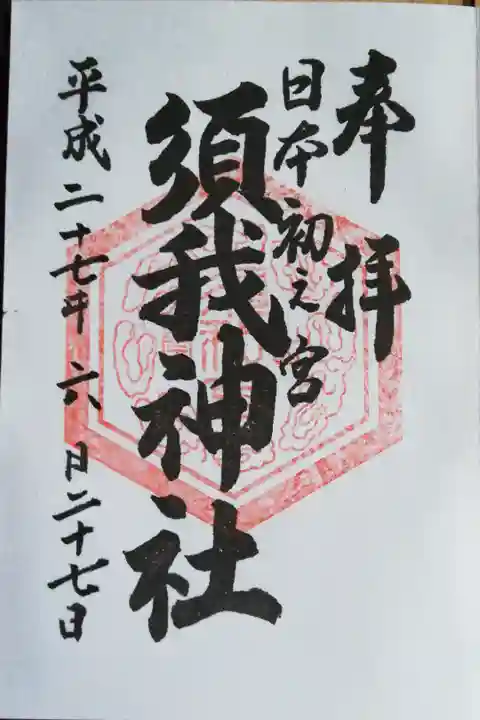 奉拝
日本初之宮
須我神社
平成二十七年 六月二十七日